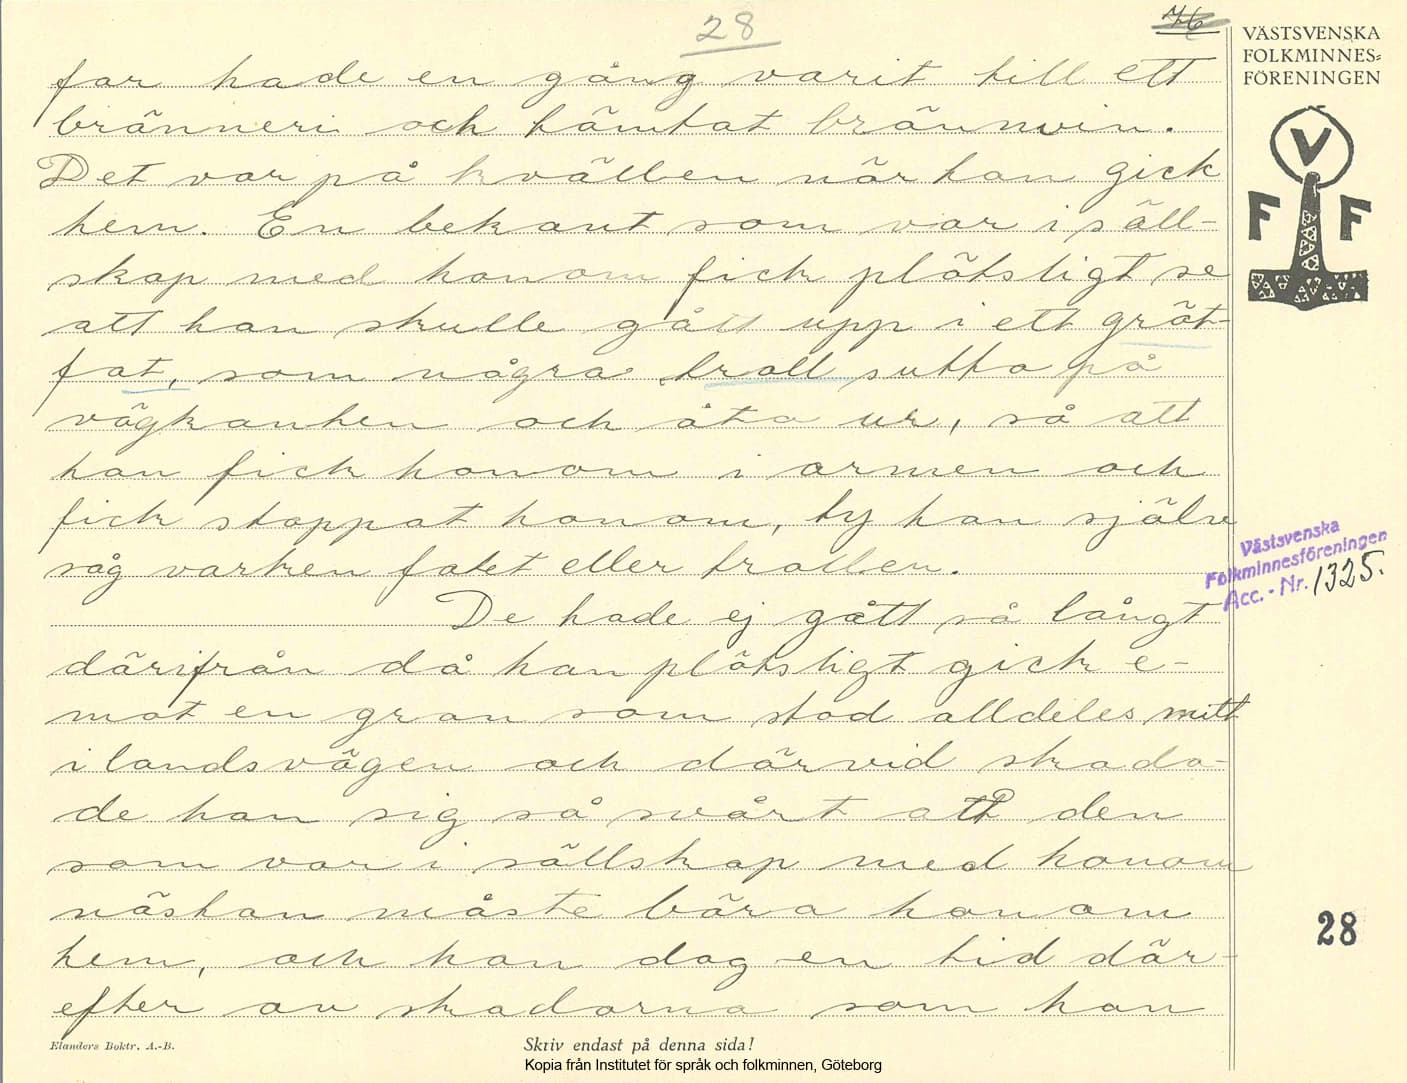 28
76
VÄSTSVENSKA
FOLKMINNES-
FÖRENINGEN
V
F F
far hade en gång varit till ett
bränneri och hämtat brännvin.
Det var på kvällen när han gick
hem. En bekant som var i säll-
skap med honom fick plötsligt se
att han skulle gått upp i ett gröt-
fat, som några troll sutto på
vägkanten och åto ur, så att
han fick honom i armen och
fick stoppat honom, ty han själv
såg varken fatet eller trollen.
De hade ej gått så långt
därifrån då han plötsligt gick e-
mot en gran som stod alldeles mitt
i landsvägen och därvid skada-
de han sig så svårt att den
som var i sällskap med honom
nästan måste bära honom
hem, och han dog en tid där-
efter av skadorna som han
Västsvenska
Folkminnesföreningen
Acc. - Nr. 1325.
28
Elanders Boktr. A.-B.
Skriv endast på denna sida!
Kopia från Institutet för språk och folkminnen, Göteborg